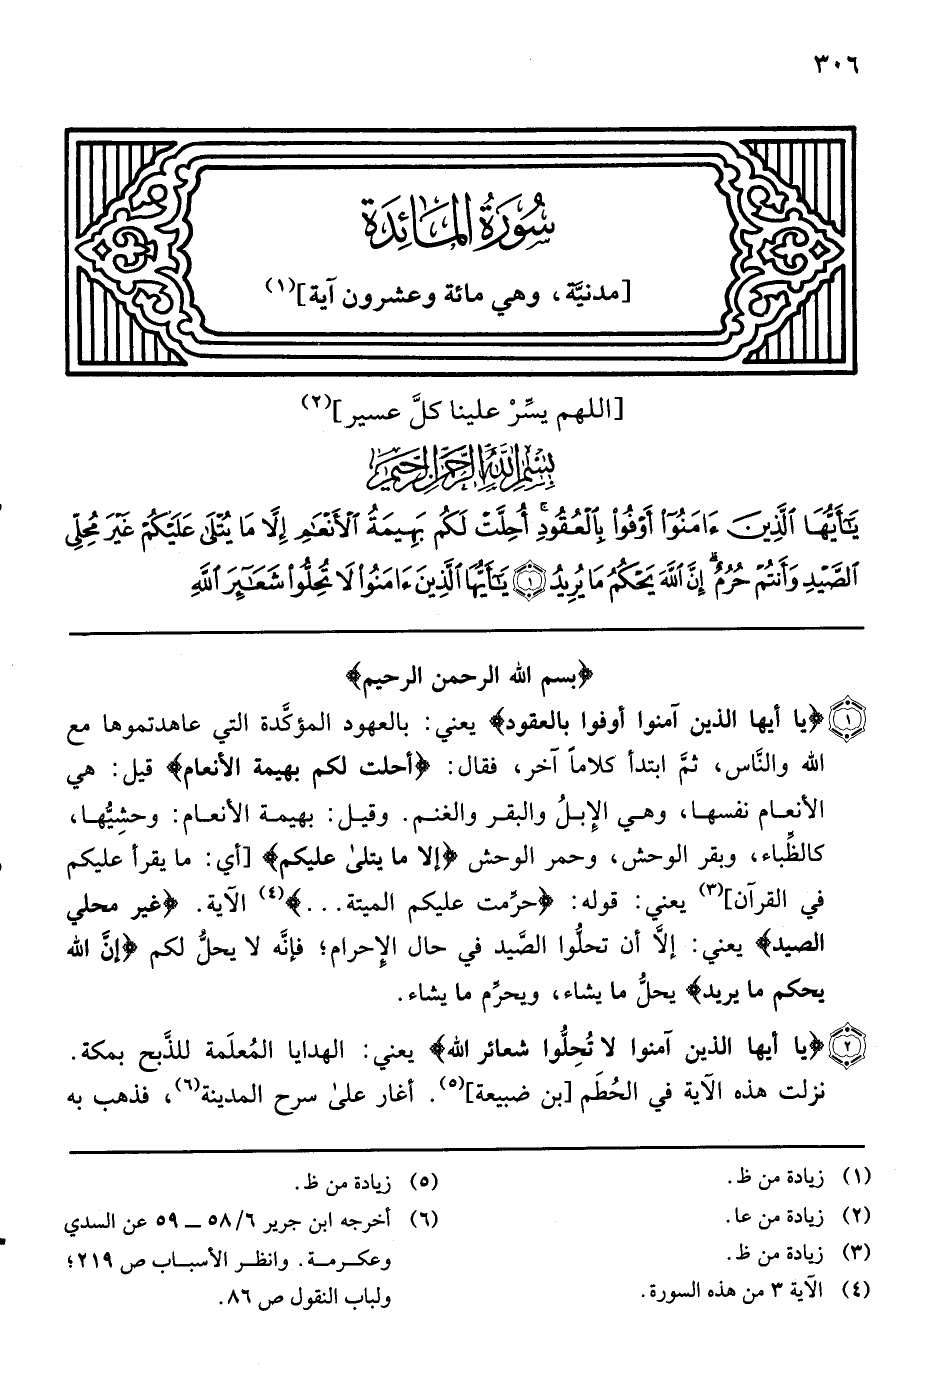 ٣٠٦
سُورَةُ المَائِدَة
[مدنيَّة، وهي مائة وعشرون آية](١)
[اللهم يسِّرْ علينا كلَّ عسير](٢)
بِسْمِ اللَّهِ الرَّحْمَنِ الرَّحِيمِ
يَٰٓأَيُّهَا ٱلَّذِينَ ءَامَنُوٓا۟ أَوْفُوا۟ بِٱلْعُقُودِ ۚ أُحِلَّتْ لَكُم بَهِيمَةُ ٱلْأَنْعَٰمِ إِلَّا مَا يُتْلَىٰ عَلَيْكُمْ غَيْرَ مُحِلِّى
ٱلصَّيْدِ وَأَنتُمْ حُرُمٌ ۗ إِنَّ ٱللَّهَ يَحْكُمُ مَا يُرِيدُ ١ يَٰٓأَيُّهَا ٱلَّذِينَ ءَامَنُوا۟ لَا تُحِلُّوا۟ شَعَٰٓئِرَ ٱللَّهِ
﴿بسم الله الرحمن الرحيم﴾
١ ﴿يا أيها الذين آمنوا أوفوا بالعقود﴾ يعني: بالعهود المؤكَّدة التي عاهدتموها مع
الله والنَّاس، ثمَّ ابتدأ كلاماً آخر، فقال: ﴿أحلت لكم بهيمة الأنعام﴾ قيل: هي
الأنعام نفسها، وهي الإِبلُ والبقر والغنم. وقيل: بهيمة الأنعام: وحشِيُّها،
كالظِّباء، وبقر الوحش، وحمر الوحش ﴿إلا ما يتلىٰ عليكم﴾ [أي: ما يقرأ عليكم
في القرآن](٣) يعني: قوله: ﴿حرِّمت عليكم الميتة...﴾(٤) الآية. ﴿غير محلي
الصيد﴾ يعني: إلاَّ أن تحلُّوا الصَّيد في حال الإِحرام؛ فإنَّه لا يحلُّ لكم ﴿إنَّ الله
يحكم ما يريد﴾ يحلُّ ما يشاء، ويحرِّم ما يشاء.
٢ ﴿يا أيها الذين آمنوا لا تُحِلُّوا شعائر الله﴾ يعني: الهدايا المُعلَمة للذَّبح بمكة.
نزلت هذه الآية في الحُطَم [بن ضبيعة](٥). أغار علىٰ سرح المدينة(٦)، فذهب به
(١) زيادة من ظ.
(٢) زيادة من عا.
(٣) زيادة من ظ.
(٤) الآية ٣ من هذه السورة.
(٥) زيادة من ظ.
(٦) أخرجه ابن جرير ٥٨/٦ ــ ٥٩ عن السدي
وعكرمة. وانظر الأسباب ص ٢١٩؛
ولباب النقول ص ٨٦.